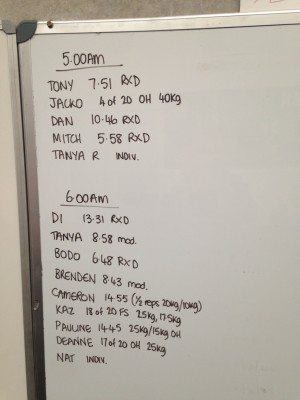 5.00AM
TONY 7.51 RXD
JACKO 4 of 20 OH 40Kg
DAN 10.46 RXD
MITCH 5.58 RXD
TANYA R INDIV.
6.00AM
DI 13.31 RXD
TANYA 8.58 mod.
BODO 6.48 RXD
BRENDEN 8.43 mod.
CAMERON 14.55 (1/2 reps 20kg/10kg)
KAZ 18 of 20 FS 25kg, 17.5kg
PAULINE 14.45 25kg/15kg OH
DEANNE 17 of 20 OH 25kg
NAT INDIV.